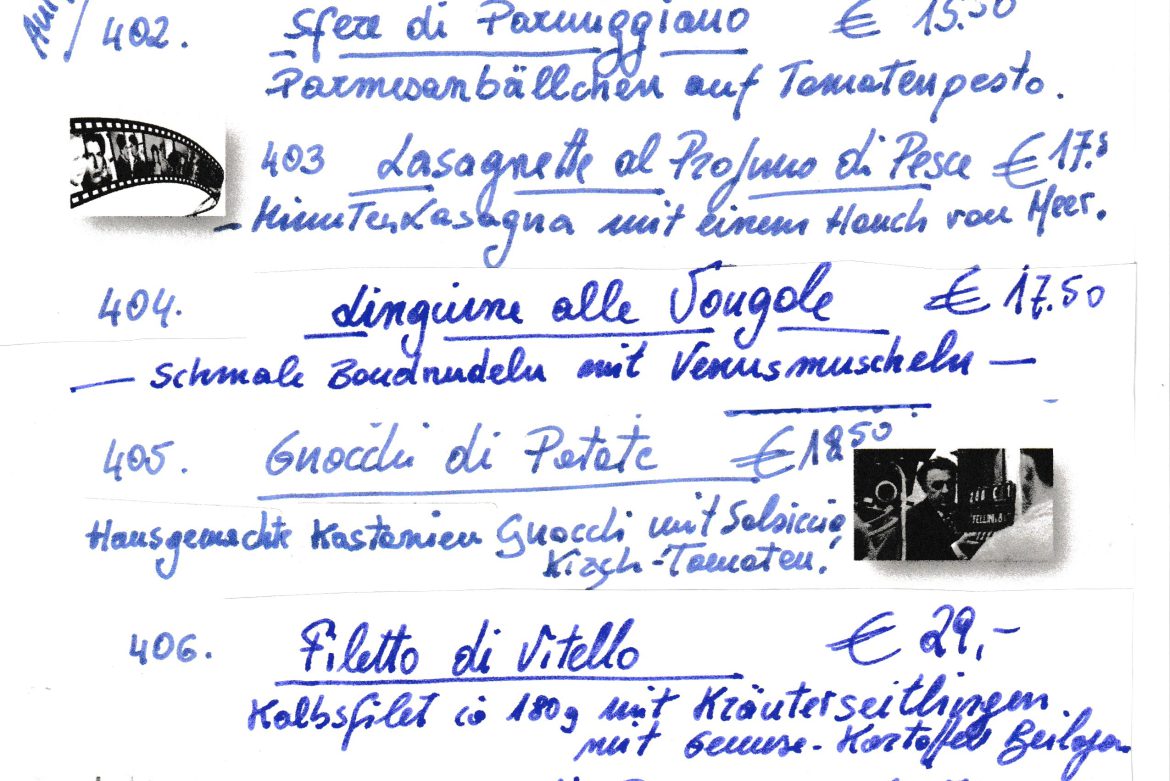 402. Sfere di Parmiggiano € 15.50
Parmesanbällchen auf Tomatenpesto.
403 Lasagnette al Profumo di Pesce € 17.5
- Minuten Lasagna mit einem Hauch von Meer.
404. Linguine alle Vongole € 17.50
— Schmale Bandnudeln mit Venusmuscheln —
405. Gnocchi di Patate € 18.50
Hausgemachte Kastanien Gnocchi mit Salsiccia,
Kirsch-Tomaten!
406. Filetto di Vitello € 29,-
Kalbsfilet ca 180g mit Kräuterseitlingen.
mit Gemüse- Kartoffel Beilagen